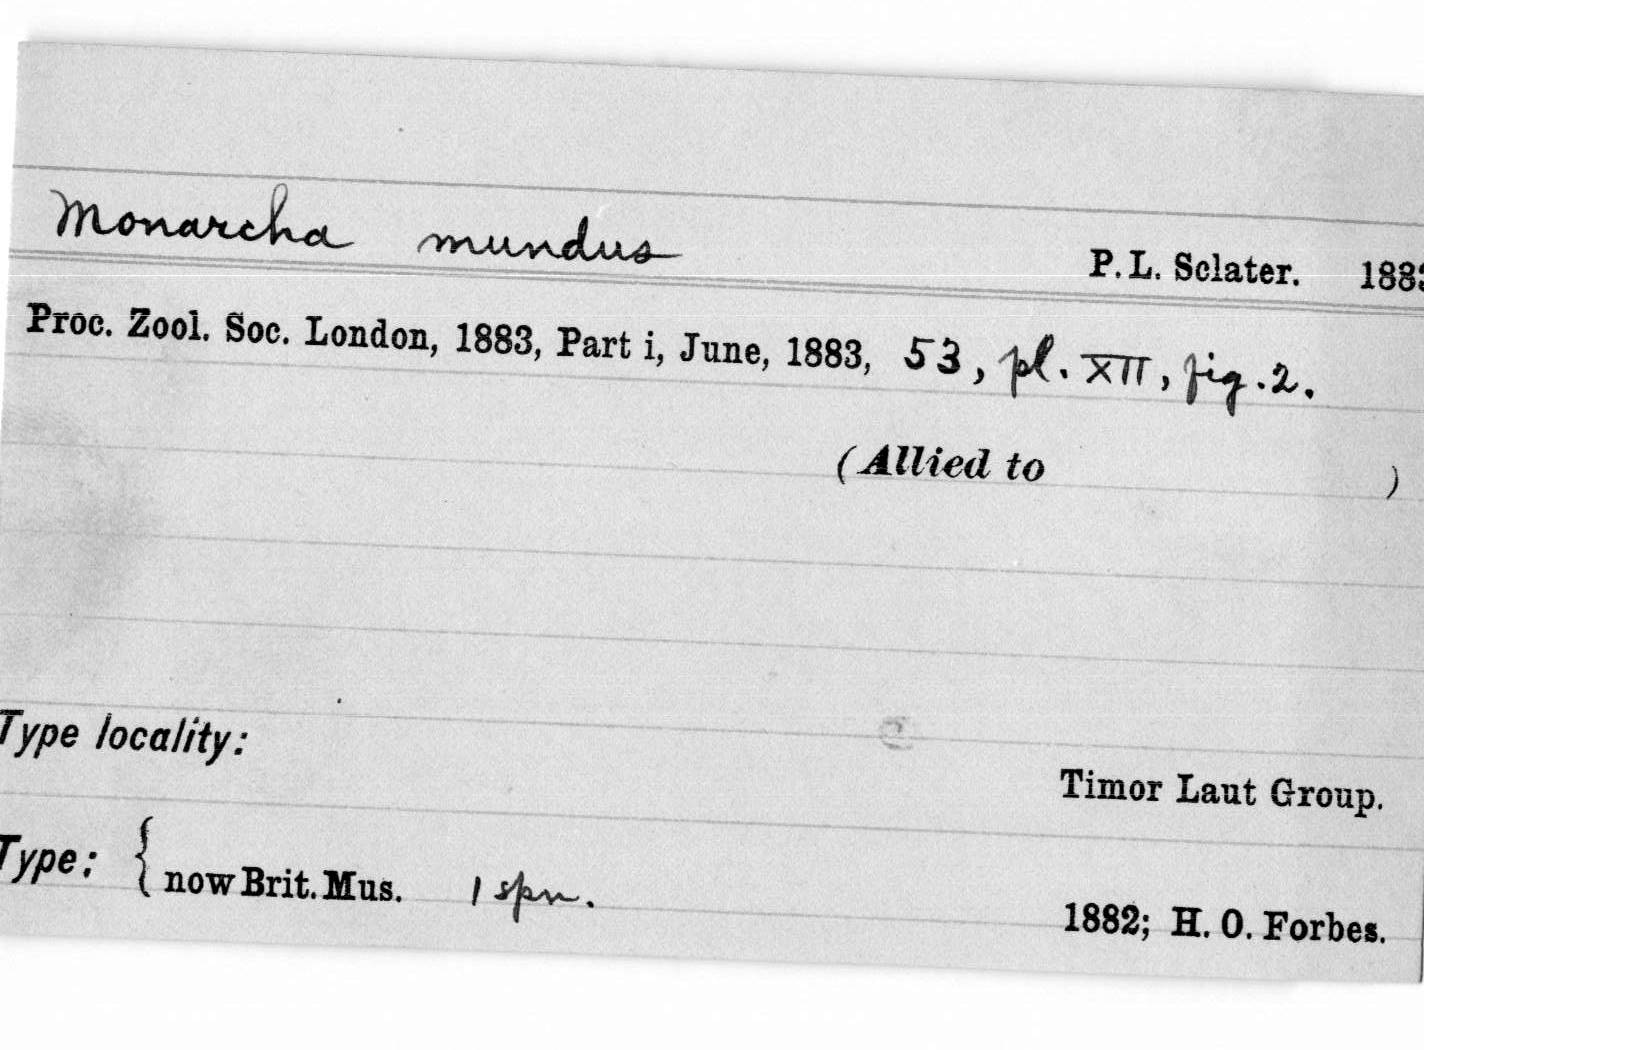 Monarcha mundus P. L. Sclater. 1883
Proc. Zool. Soc. London, 1883, Part i, June, 1883, 53, pl. XII, fig. 2.
(Allied to )
Type locality:
Timor Laut Group.
Type: { now Brit. Mus. 1 spn.
1882; H. O. Forbes.